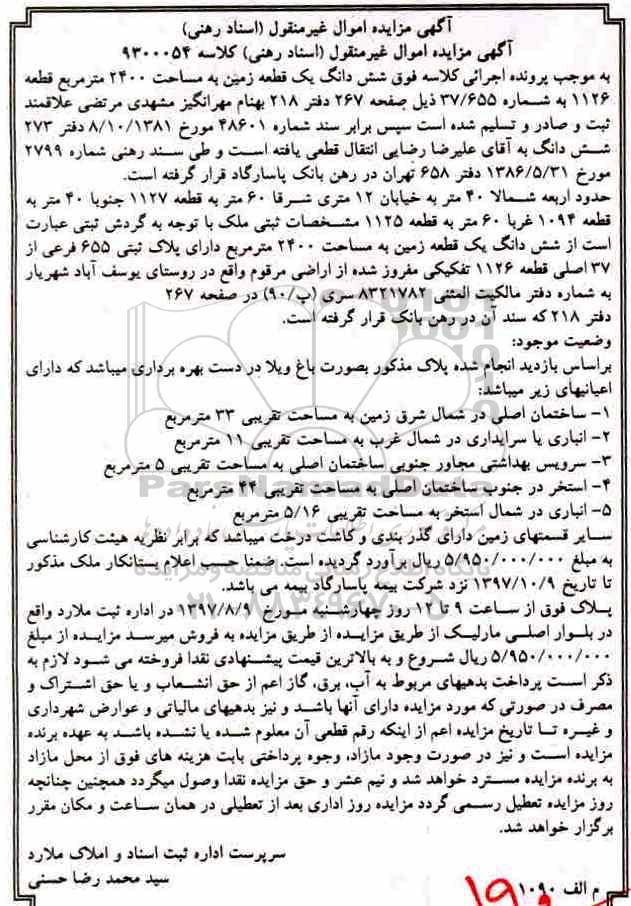 آگهی مزایده اموال غیرمنقول (اسناد رهنی)
آگهی مزایده اموال غیرمنقول (اسناد رهنی) کلاسه ۹۳۰۰۰۵۴
به موجب پرونده اجرائی کلاسه فوق شش دانگ یک قطعه زمین به مساحت ۲۴۰۰ مترمربع قطعه
۱۱۲۶ به شماره ۳۷/۶۵۵ ذیل صفحه ۲۶۷ دفتر ۲۱۸ بهنام مهرانگیز مشهدی مرتضی علاقمند
ثبت و صادر و تسلیم شده است سپس برابر سند شماره ۴۸۶۰۱ مورخ ۸/۱۰/۱۳۸۱ دفتر ۲۷۳
شش دانگ به آقای علیرضا رضایی انتقال قطعی یافته است و طی سند رهنی شماره ۲۷۹۹
مورخ ۱۳۸۶/۵/۳۱ دفتر ۶۵۸ تهران در رهن بانک پاسارگاد قرار گرفته است.
حدود اربعه شمالا ۴۰ متر به خیابان ۱۲ متری شرقا ۶۰ متر به قطعه ۱۱۲۷ جنوبا ۴۰ متر به
قطعه ۱۰۹۴ غربا ۶۰ متر به قطعه ۱۱۲۵ مشخصات ثبتی ملک با توجه به گردش ثبتی عبارت
است از شش دانگ یک قطعه زمین به مساحت ۲۴۰۰ مترمربع دارای پلاک ثبتی ۶۵۵ فرعی از
۳۷ اصلی قطعه ۱۱۲۶ تفکیکی مفروز شده از اراضی مرقوم واقع در روستای یوسف آباد شهریار
به شماره دفتر مالکیت المثنی ۸۳۲۱۷۸۲ سری (ب/۹۰) در صفحه ۲۶۷
دفتر ۲۱۸ که سند آن در رهن بانک قرار گرفته است.
وضعیت موجود:
براساس بازدید انجام شده پلاک مذکور بصورت باغ ویلا در دست بهره برداری میباشد که دارای
اعیانیهای زیر میباشد:
۱- ساختمان اصلی در شمال شرق زمین به مساحت تقریبی ۳۳ مترمربع
۲- انباری یا سرایداری در شمال غرب به مساحت تقریبی ۱۱ مترمربع
۳- سرویس بهداشتی مجاور جنوبی ساختمان اصلی به مساحت تقریبی ۵ مترمربع
۴- استخر در جنوب ساختمان اصلی به مساحت تقریبی ۴۴ مترمربع
۵- انباری در شمال استخر به مساحت تقریبی ۵/۱۶ مترمربع
سایر قسمتهای زمین دارای گذر بندی و کاشت درخت میباشد که برابر نظریه هیئت کارشناسی
به مبلغ ۵/۹۵۰/۰۰۰/۰۰۰ ریال برآورد گردیده است. ضمنا حسب اعلام بستانکار ملک مذکور
تا تاریخ ۱۳۹۷/۱۰/۹ نزد شرکت بیمه پاسارگاد بیمه می باشد.
پلاک فوق از ساعت ۹ تا ۱۲ روز چهارشنبه مورخ ۱۳۹۷/۸/۹ در اداره ثبت ملارد واقع
در بلوار اصلی مارلیک از طریق مزایده از طریق مزایده به فروش میرسد مزایده از مبلغ
۵/۹۵۰/۰۰۰/۰۰۰ ریال شروع و به بالاترین قیمت پیشنهادی نقدا فروخته می شود لازم به
ذکر است پرداخت بدهیهای مربوط به آب، برق، گاز اعم از حق انشعاب و یا حق اشتراک و
مصرف در صورتی که مورد مزایده دارای آنها باشد و نیز بدهیهای مالیاتی و عوارض شهرداری
و غیره تا تاریخ مزایده اعم از اینکه رقم قطعی آن معلوم شده یا نشده باشد به عهده برنده
مزایده است و نیز در صورت وجود مازاد، وجوه پرداختی بابت هزینه های فوق از محل مازاد
به برنده مزایده مسترد خواهد شد و نیم عشر و حق مزایده نقدا وصول میگردد همچنین چنانچه
روز مزایده تعطیل رسمی گردد مزایده روز اداری بعد از تعطیلی در همان ساعت و مکان مقرر
برگزار خواهد شد.
سرپرست اداره ثبت اسناد و املاک ملارد
سید محمد رضا حسنی
م الف ۱۰۹۰
ParsNamadData